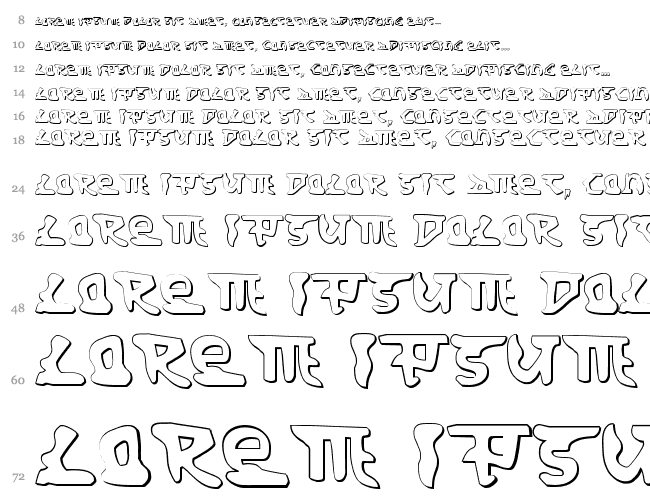 8 Lorem ipsum dolor sit amet, consectetuer adipiscing elit...
10 Lorem ipsum dolor sit amet, consectetuer adipiscing elit...
12 Lorem ipsum dolor sit amet, consectetuer adipiscing elit...
14 Lorem ipsum dolor sit amet, consectetuer adipiscin
16 Lorem ipsum dolor sit amet, consectetuer adipi
18 Lorem ipsum dolor sit amet, consectetuer
24 Lorem ipsum dolor sit amet, cons
36 Lorem ipsum dolor sit
48 Lorem ipsum dol
60 Lorem ipsum
72 Lorem ipsu